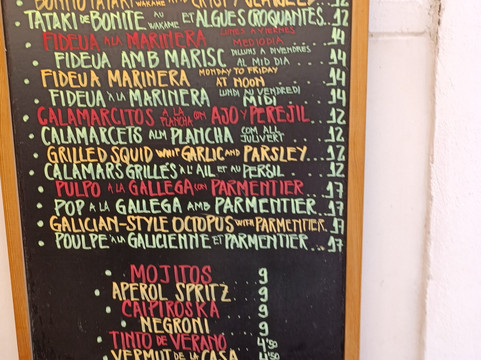 BONITO TATAKI WAKAME AND CRISPY SEAWEED 12
TATAKI DE BONITE AU WAKAME ET ALGUES CROQUANTES... 12
FIDEUA A LA MARINERA LUNES A VIERNES MEDIODIA ... 14
FIDEUA AMB MARISC DILLUNS A DIVENDRES AL MIG DIA .. 14
FIDEUA MARINERA MONDAY TO FRIDAY AT NOON ... 14
FIDEUA À LA MARINERA LUNDI AU VENDREDI MIDI ... 14
CALAMARCITOS A LA PLANCHA CON AJO Y PEREJIL .. 12
CALAMARCETS ALM PLANCHA COM ALL JULIVERT ... 12
GRILLED SQUID WHIT GARLIC AND PARSLEY... 12
CALAMARS GRILLÉS À L'AIL ET AU PERSIL ... 12
PULPO A LA GALLEGA CON PARMENTIER ... 17
POP A LA GALLEGA AMB PARMENTIER... 17
GALICIAN-STYLE OCTOPUS WITH PARMENTIER. 17
POULPE À LA GALICIENNE ET PARMENTIER... 17
MOJITOS ... 9
APEROL SPRITZ .. 9
CAIPIROSKA ... 9
NEGRONI ... 9
TINTO DE VERANO .. 4'50
VERMUT DE LA CASA .. 4'50